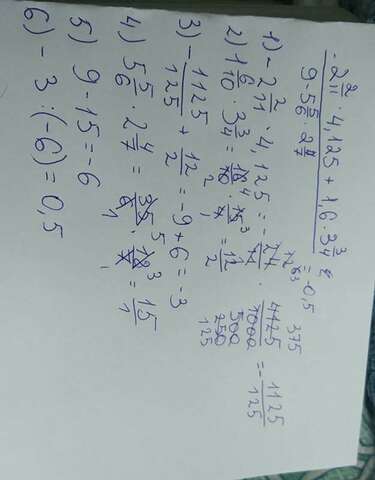 -2 2/11 · 4,125 + 1,6 · 3 3/4
9 - 5 5/6 · 2 4/7
= -0,5
1) -2 2/11 · 4,125 = - 24/11 · 4125/1000 = - 1125/125
375
500
250
125
2) 1 6/10 · 3 3/4 = 16/10 · 15/4 = 12/2
3) - 1125/125 + 12/2 = -9 + 6 = -3
4) 5 5/6 · 2 4/7 = 35/6 · 18/7 = 15/1
5) 9 - 15 = -6
6) - 3 : (-6) = 0,5